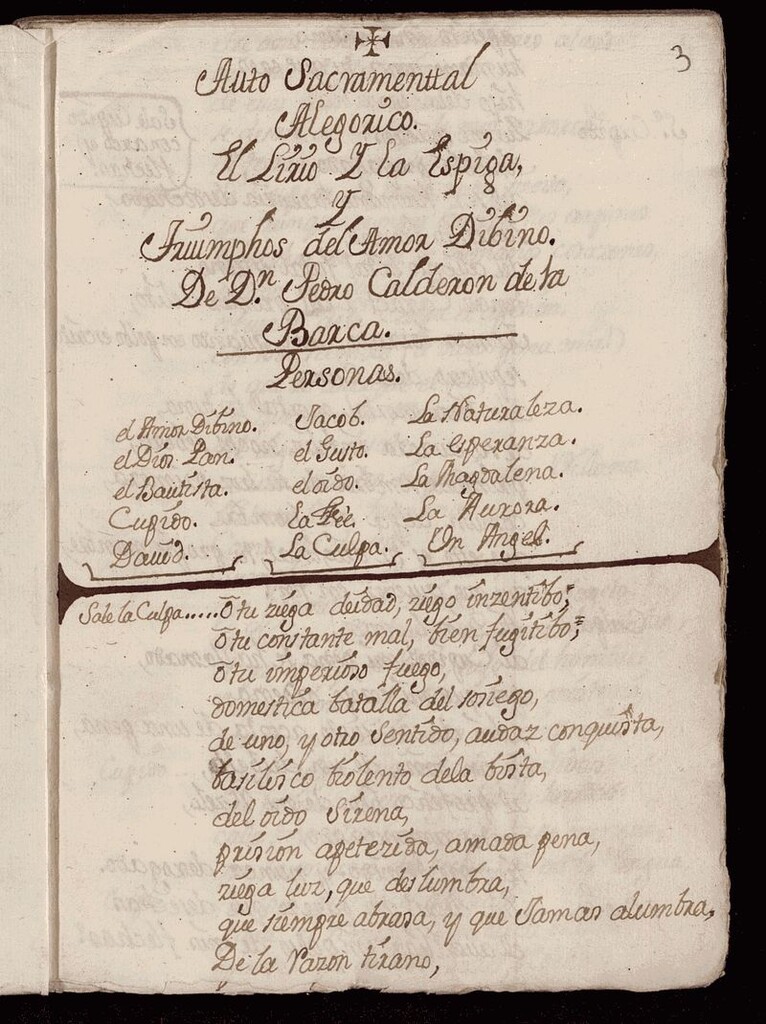 3
Auto Sacramenttal
Alegorico.
El Lirio Y la Espiga,
Y
Triumphos del Amor Dibino.
De Dn. Pedro Calderon de la
Barca.
Personas.
el Amor Dibino. Jacob. La Naturaleza.
el Dios Pan. el Gusto. La Esperanza.
el Bautista. el oido. La Magdalena.
Cupido. La Fee. La Aurora.
David. La Culpa. Un Angel.
Sale la Culpa.....O tu ziega deidad, ziego inzentibo;
O tu constante mal, bien fugitibo;
O tu imperioso fuego,
domestica batalla del sosiego,
de uno, y otro Sentido, audaz conquista,
basilisco biolento dela bista,
del oido Sirena,
prision apetezida, amada pena,
ziega luz, que deslumbra,
que siempre abrasa, y que Jamas alumbra,
De la razon tirano,